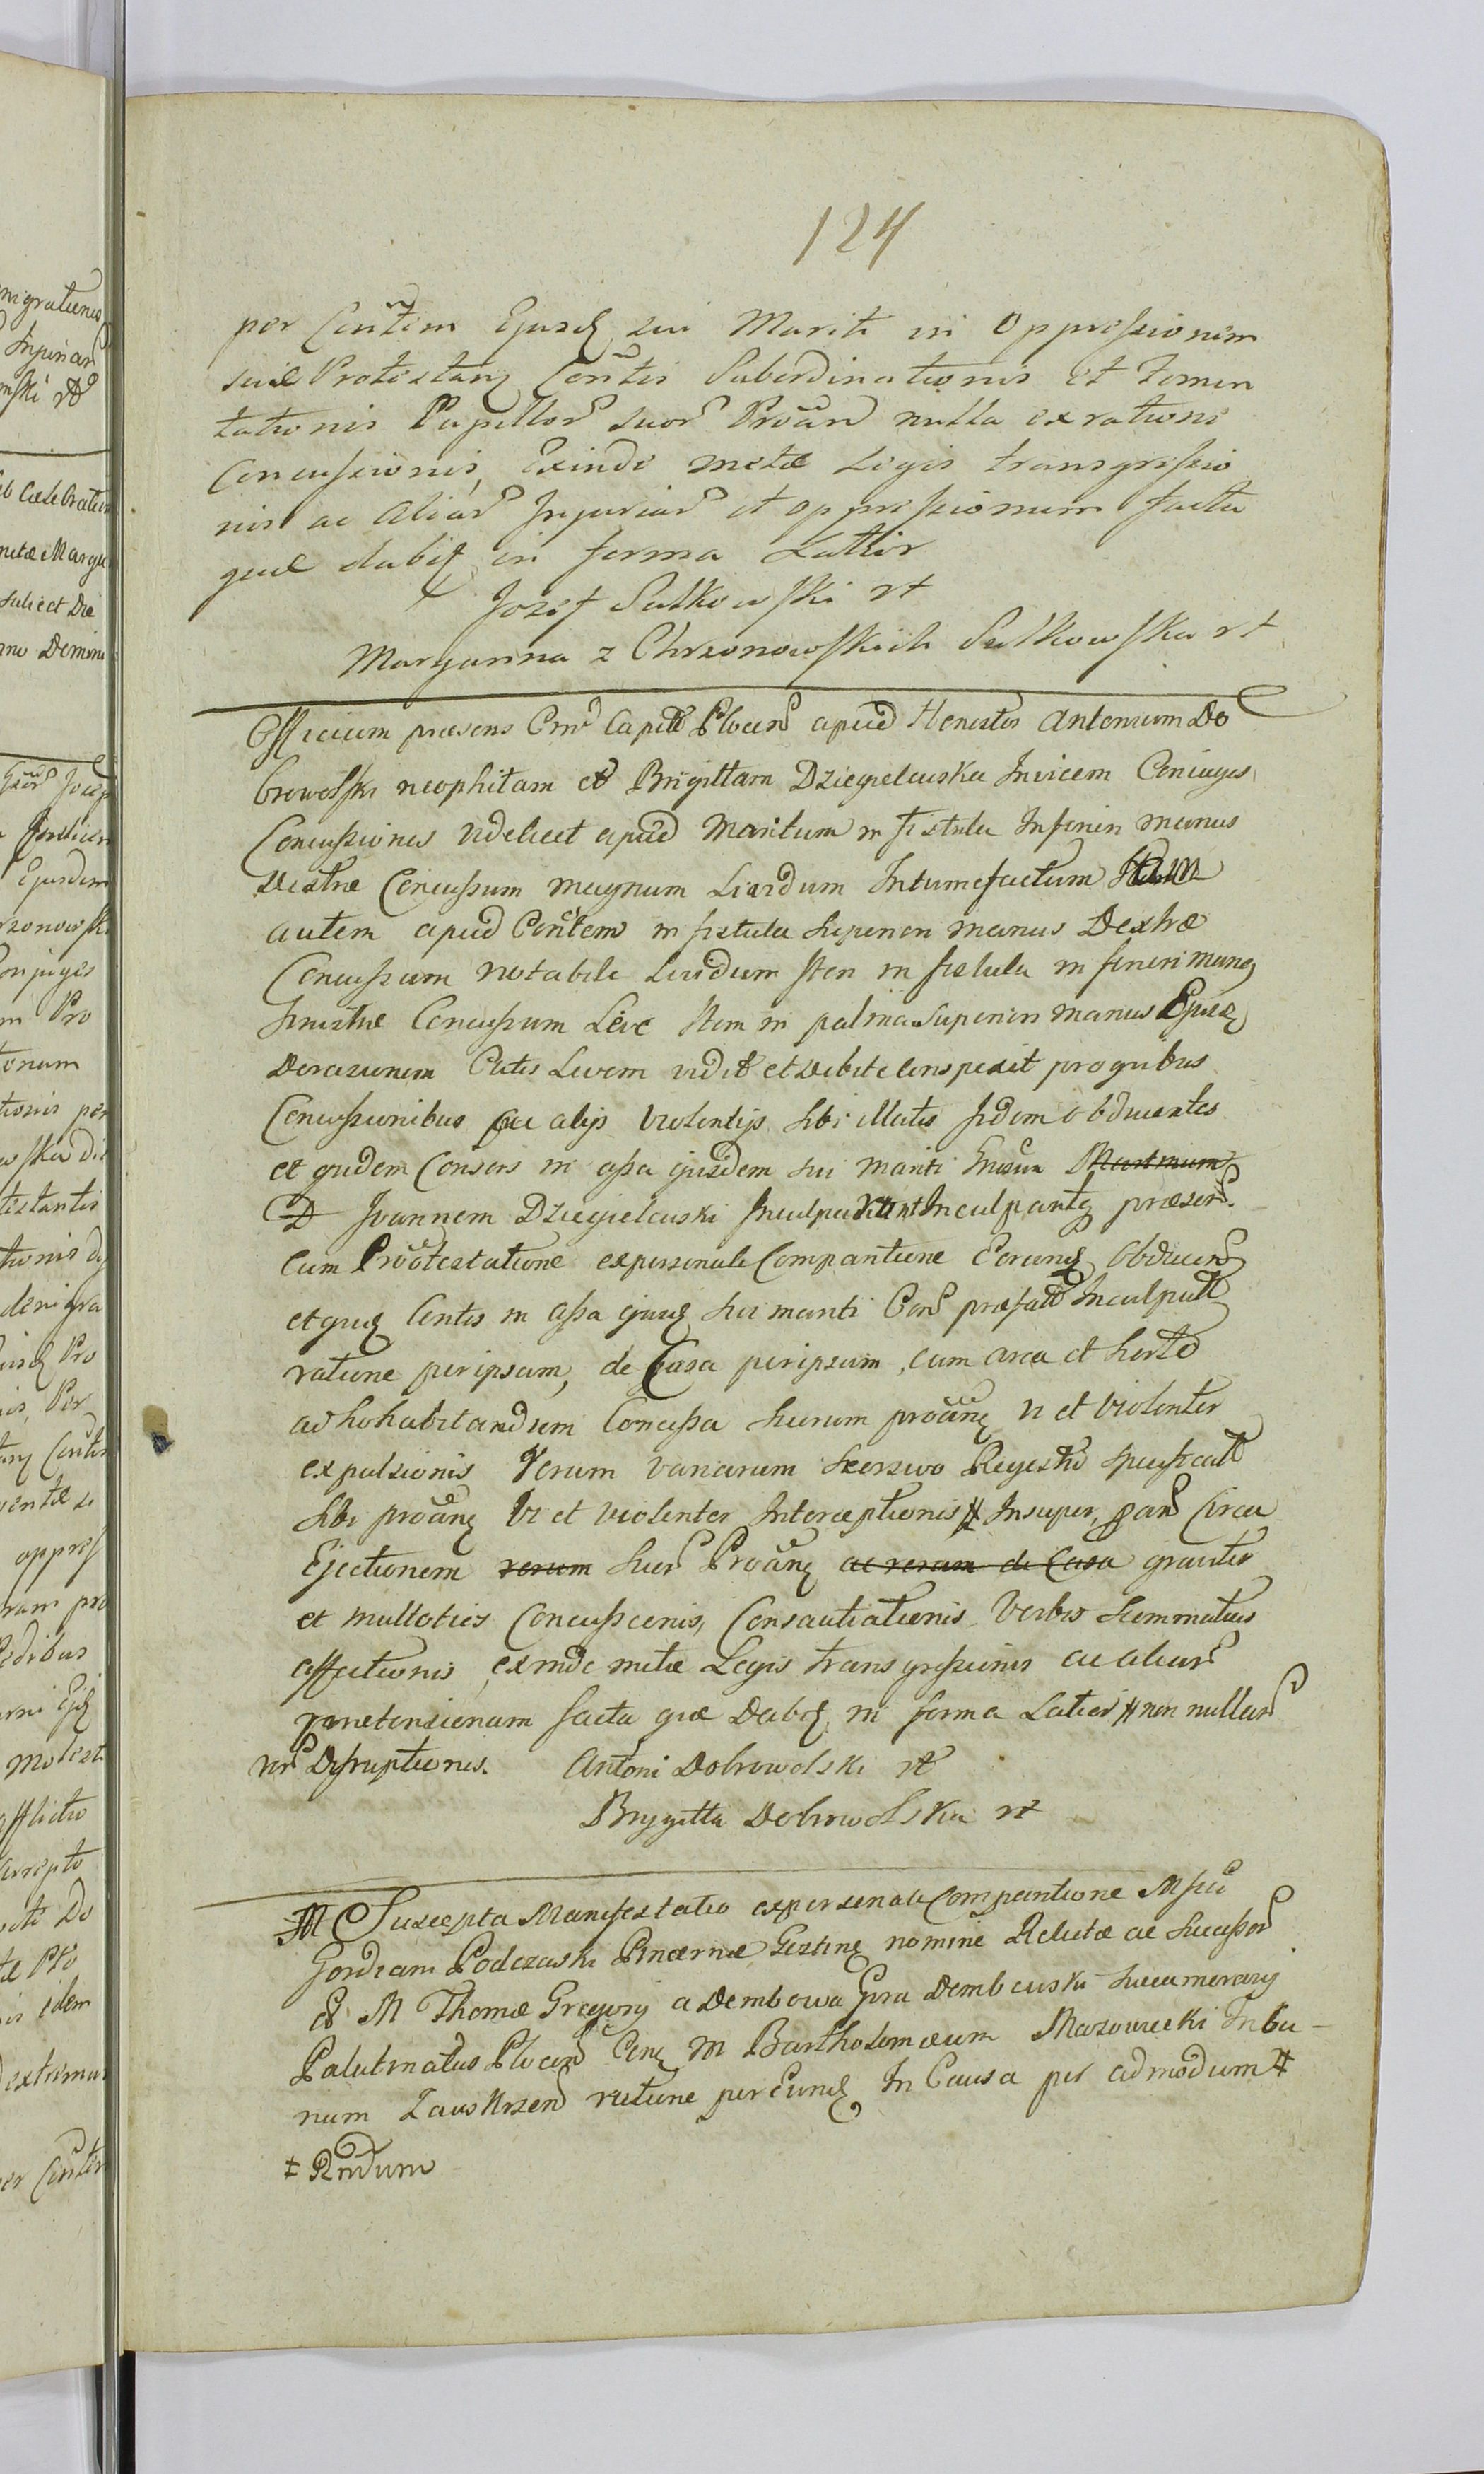 124
per Contem Ejusd sui Mariti in Oppressionem
suae Protestanẽ Contis Subordinationis et Fomen
tationis Pupillor suor Procan nulla ex ratione
Concussionis, Exinde metae Legis transgressio
nis ac aliar Injuriar et oppressionum facta
quae dabit in forma Latior
Jozef Sulkowski rt
Maryanna z Chrzonowskich Sulkowska rt
Officium praesens Capitt Plocen apud Honestos Antonium Do
browolski neophitam et Brigittam Dziegielewska Invicem Coniuges
Concussiones videlicet apud Maritum in fistula Inferiori manus
dextrae Concussum magnum Lividum Intumefactum Item
autem apud Contem in fistula superiori manus Dextrae
Concussum notabile Lividum Item in fistula inferiori manus
sinistrae Concussum Leve Item in palma superiori manus Ejusd
Derasionem Cutis Levem vidit et debite conspexit pro quibus
Concussionibus ac alijs violentijs sibi illatis fidem obducentes
et quidem Consors in assa ejusdem sui mariti Martinum
D Joannem Dziegielewski Inculpavit Inculpantq praesen
Cum Protestatione ex personali Comparitione Eorund Obducen
et quid Contis in assa ejusd sui mariti Con praefatt Inculpatt
ratione per ipsum, de Casa per ipsum, cum area et horto
ad Inhabitandum Concessa suorum procanẽ vi et violenter
expulsionis Rerum variarum seorsivo Regestro specificatt
sibi procanẽ vi et violenter Interceptionis # Insuper, pan Circa
Ejectionem rerum suor Procanẽ ac rerum de Casa graviter
et multoties Concussionis, Consauciationis Verbis Ignominiosis
affectionis exinde metae Legis transgressionis ac aliar
praetensionum facta quae Dabit in forma Latiori # non nullar
rer Disruptionis. Antoni Dobrowolski rt
Brygitta Dobrowolska rt
M Suscepta Manifestatio ex personali Comparitione Mfici
Gordiani Podczaski Pincernae Gostinẽ nomine Relictae ac Successor
M Thomae Gregorij a Dembowa Gora Dembowski Succamerarij
Palatinatus Plocen Conẽ M Bartholomaeum Mazowiecki Tribu-
num Zawskrzen ratione per Eund In Causa per admodum #
‡ Rndum